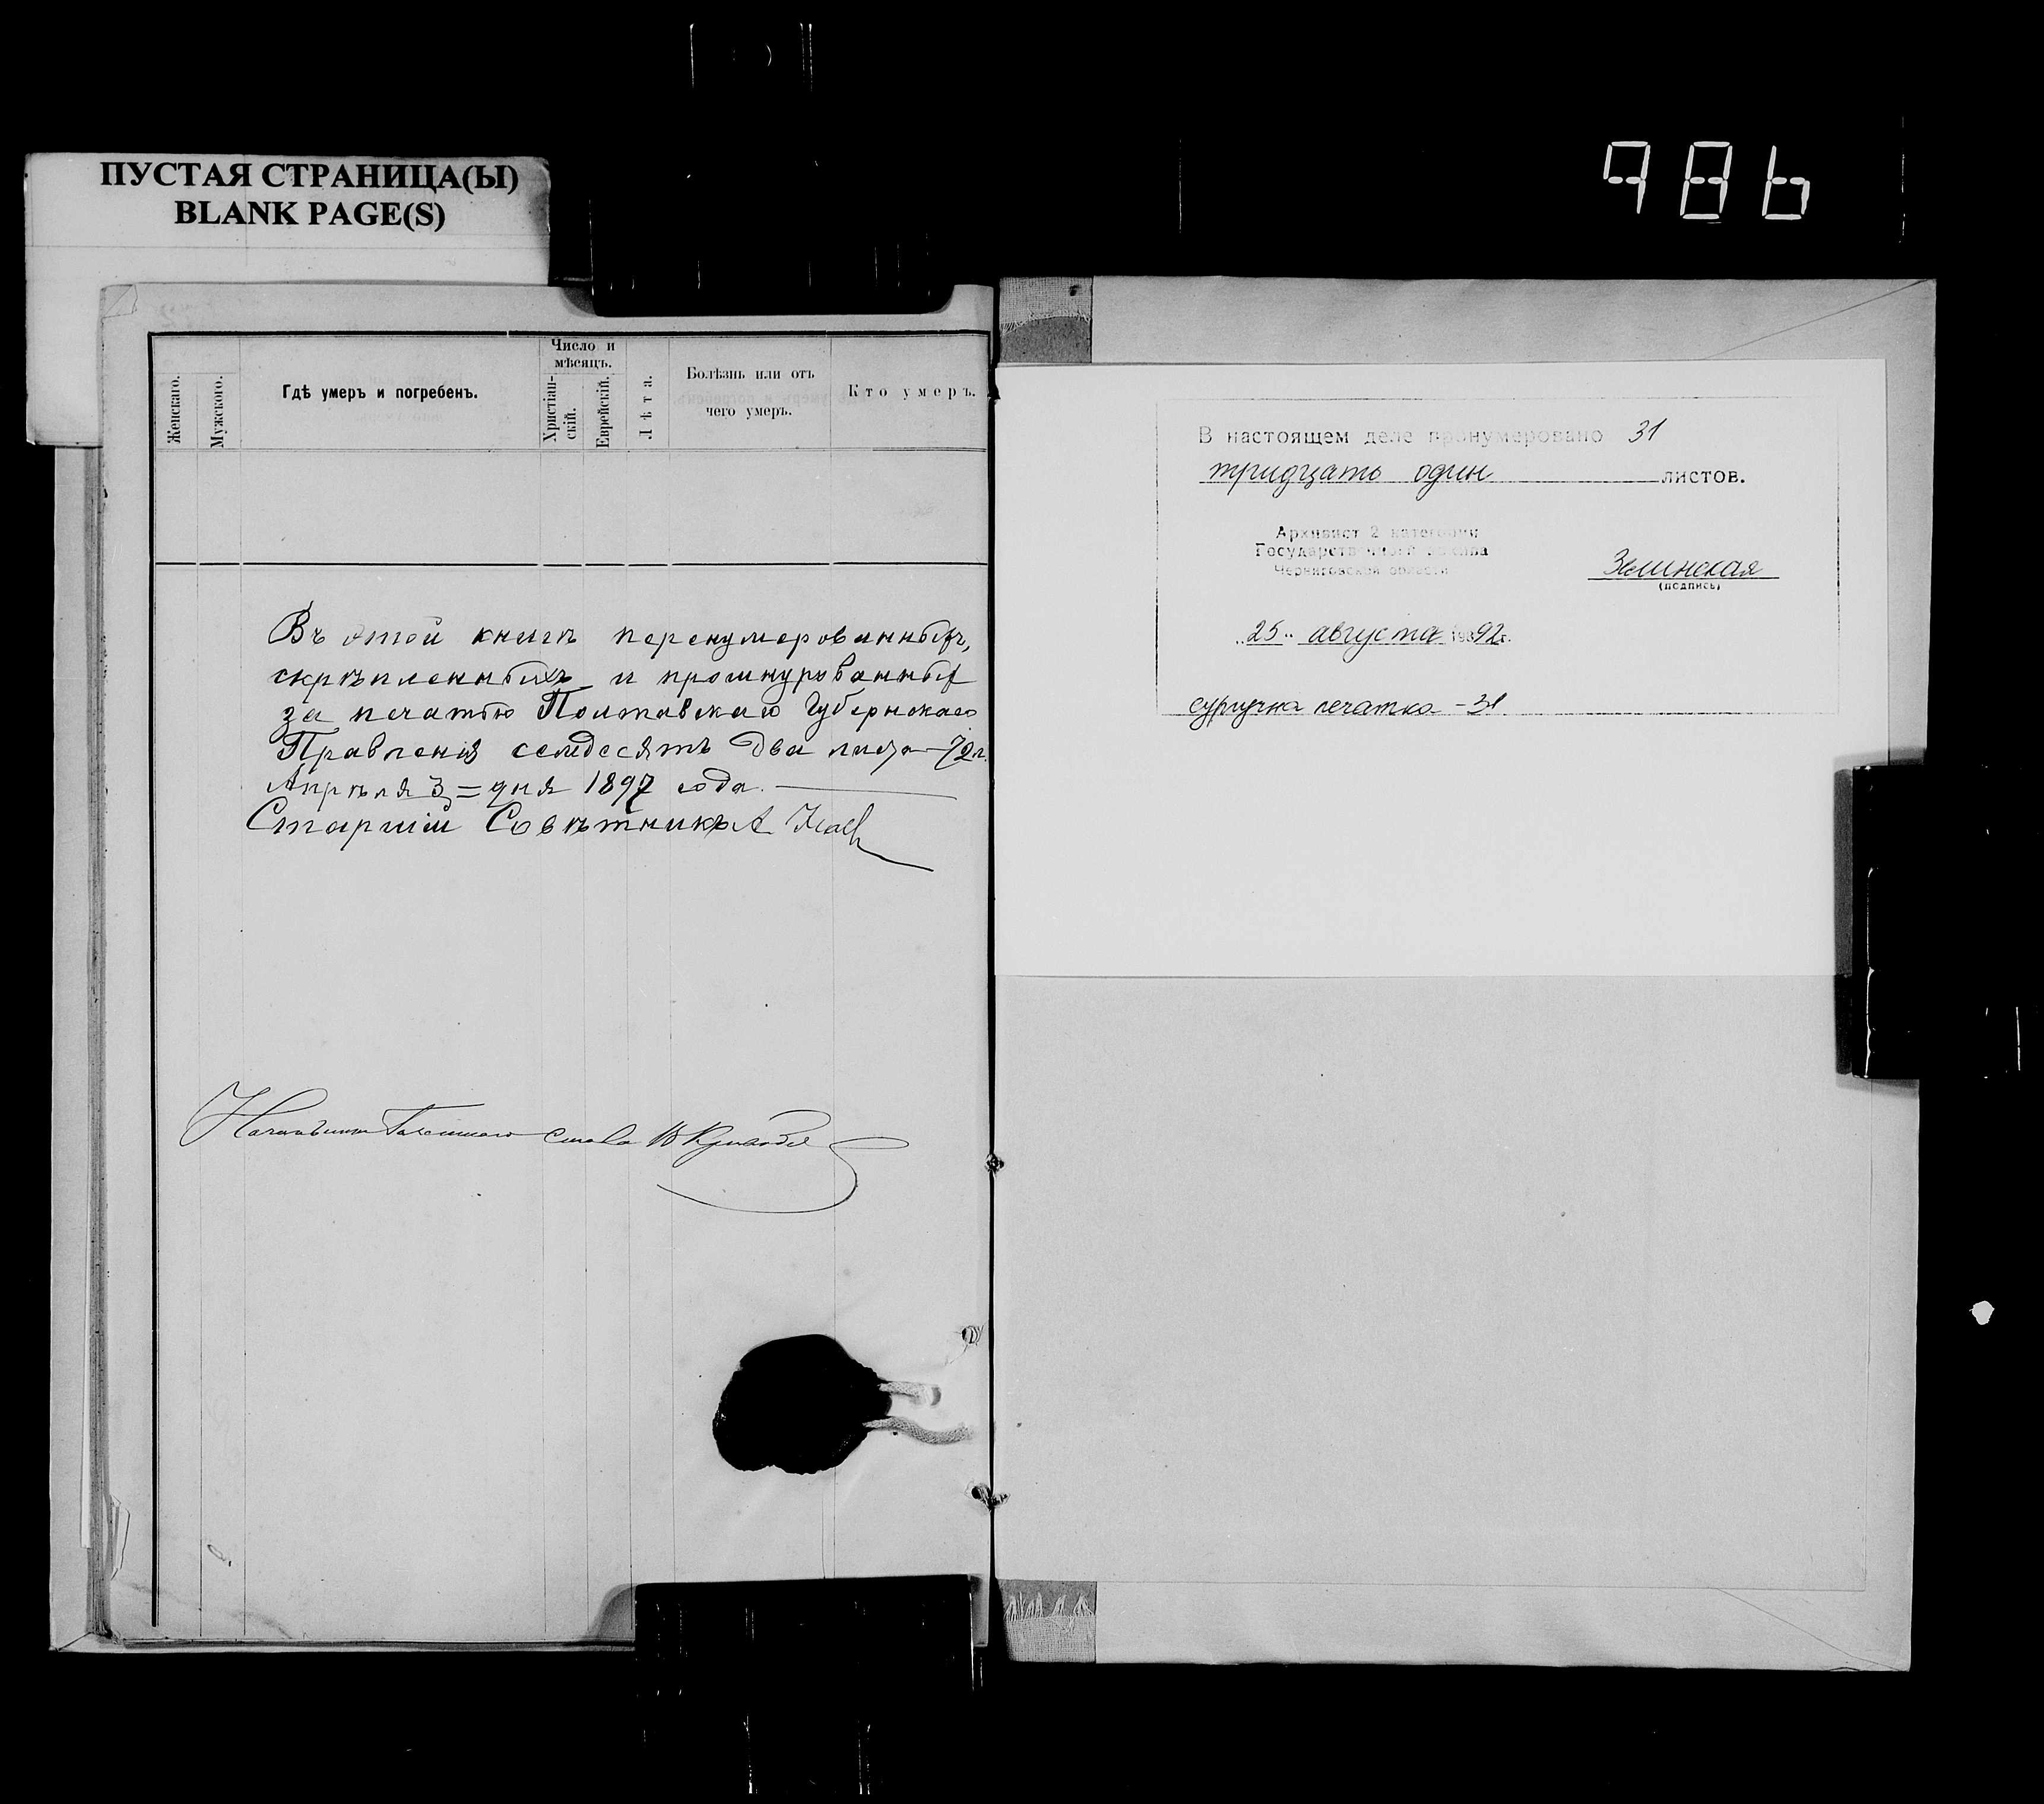 ПУСТАЯ СТРАНИЦА(Ы)
BLANK PAGE(S)
986
Женскаго.
Мужскаго.
Гдѣ умеръ и погребенъ.
Число и мѣсяцъ.
Христіан-
скій.
Еврейскій.
Лѣта.
Болѣзнь или отъ
чего умеръ.
Кто умеръ.
Въ этой книгѣ перенумерованныхъ,
скрѣпленныхъ и прошнурованныхъ
за печатью Полтавскаго Губернскаго
Правленія семдесятъ два листа – 72 л.
Апрѣля 3 = дня 1897 года.
Старшій Совѣтникъ А.
Начальникъ стола
В настоящем деле пронумеровано 31
тридцать один листов.
Архивист 2 категории
Государственного архива
Черниговской области
(подпись)
„25" августа 1992г.
сургучна печатка – 31